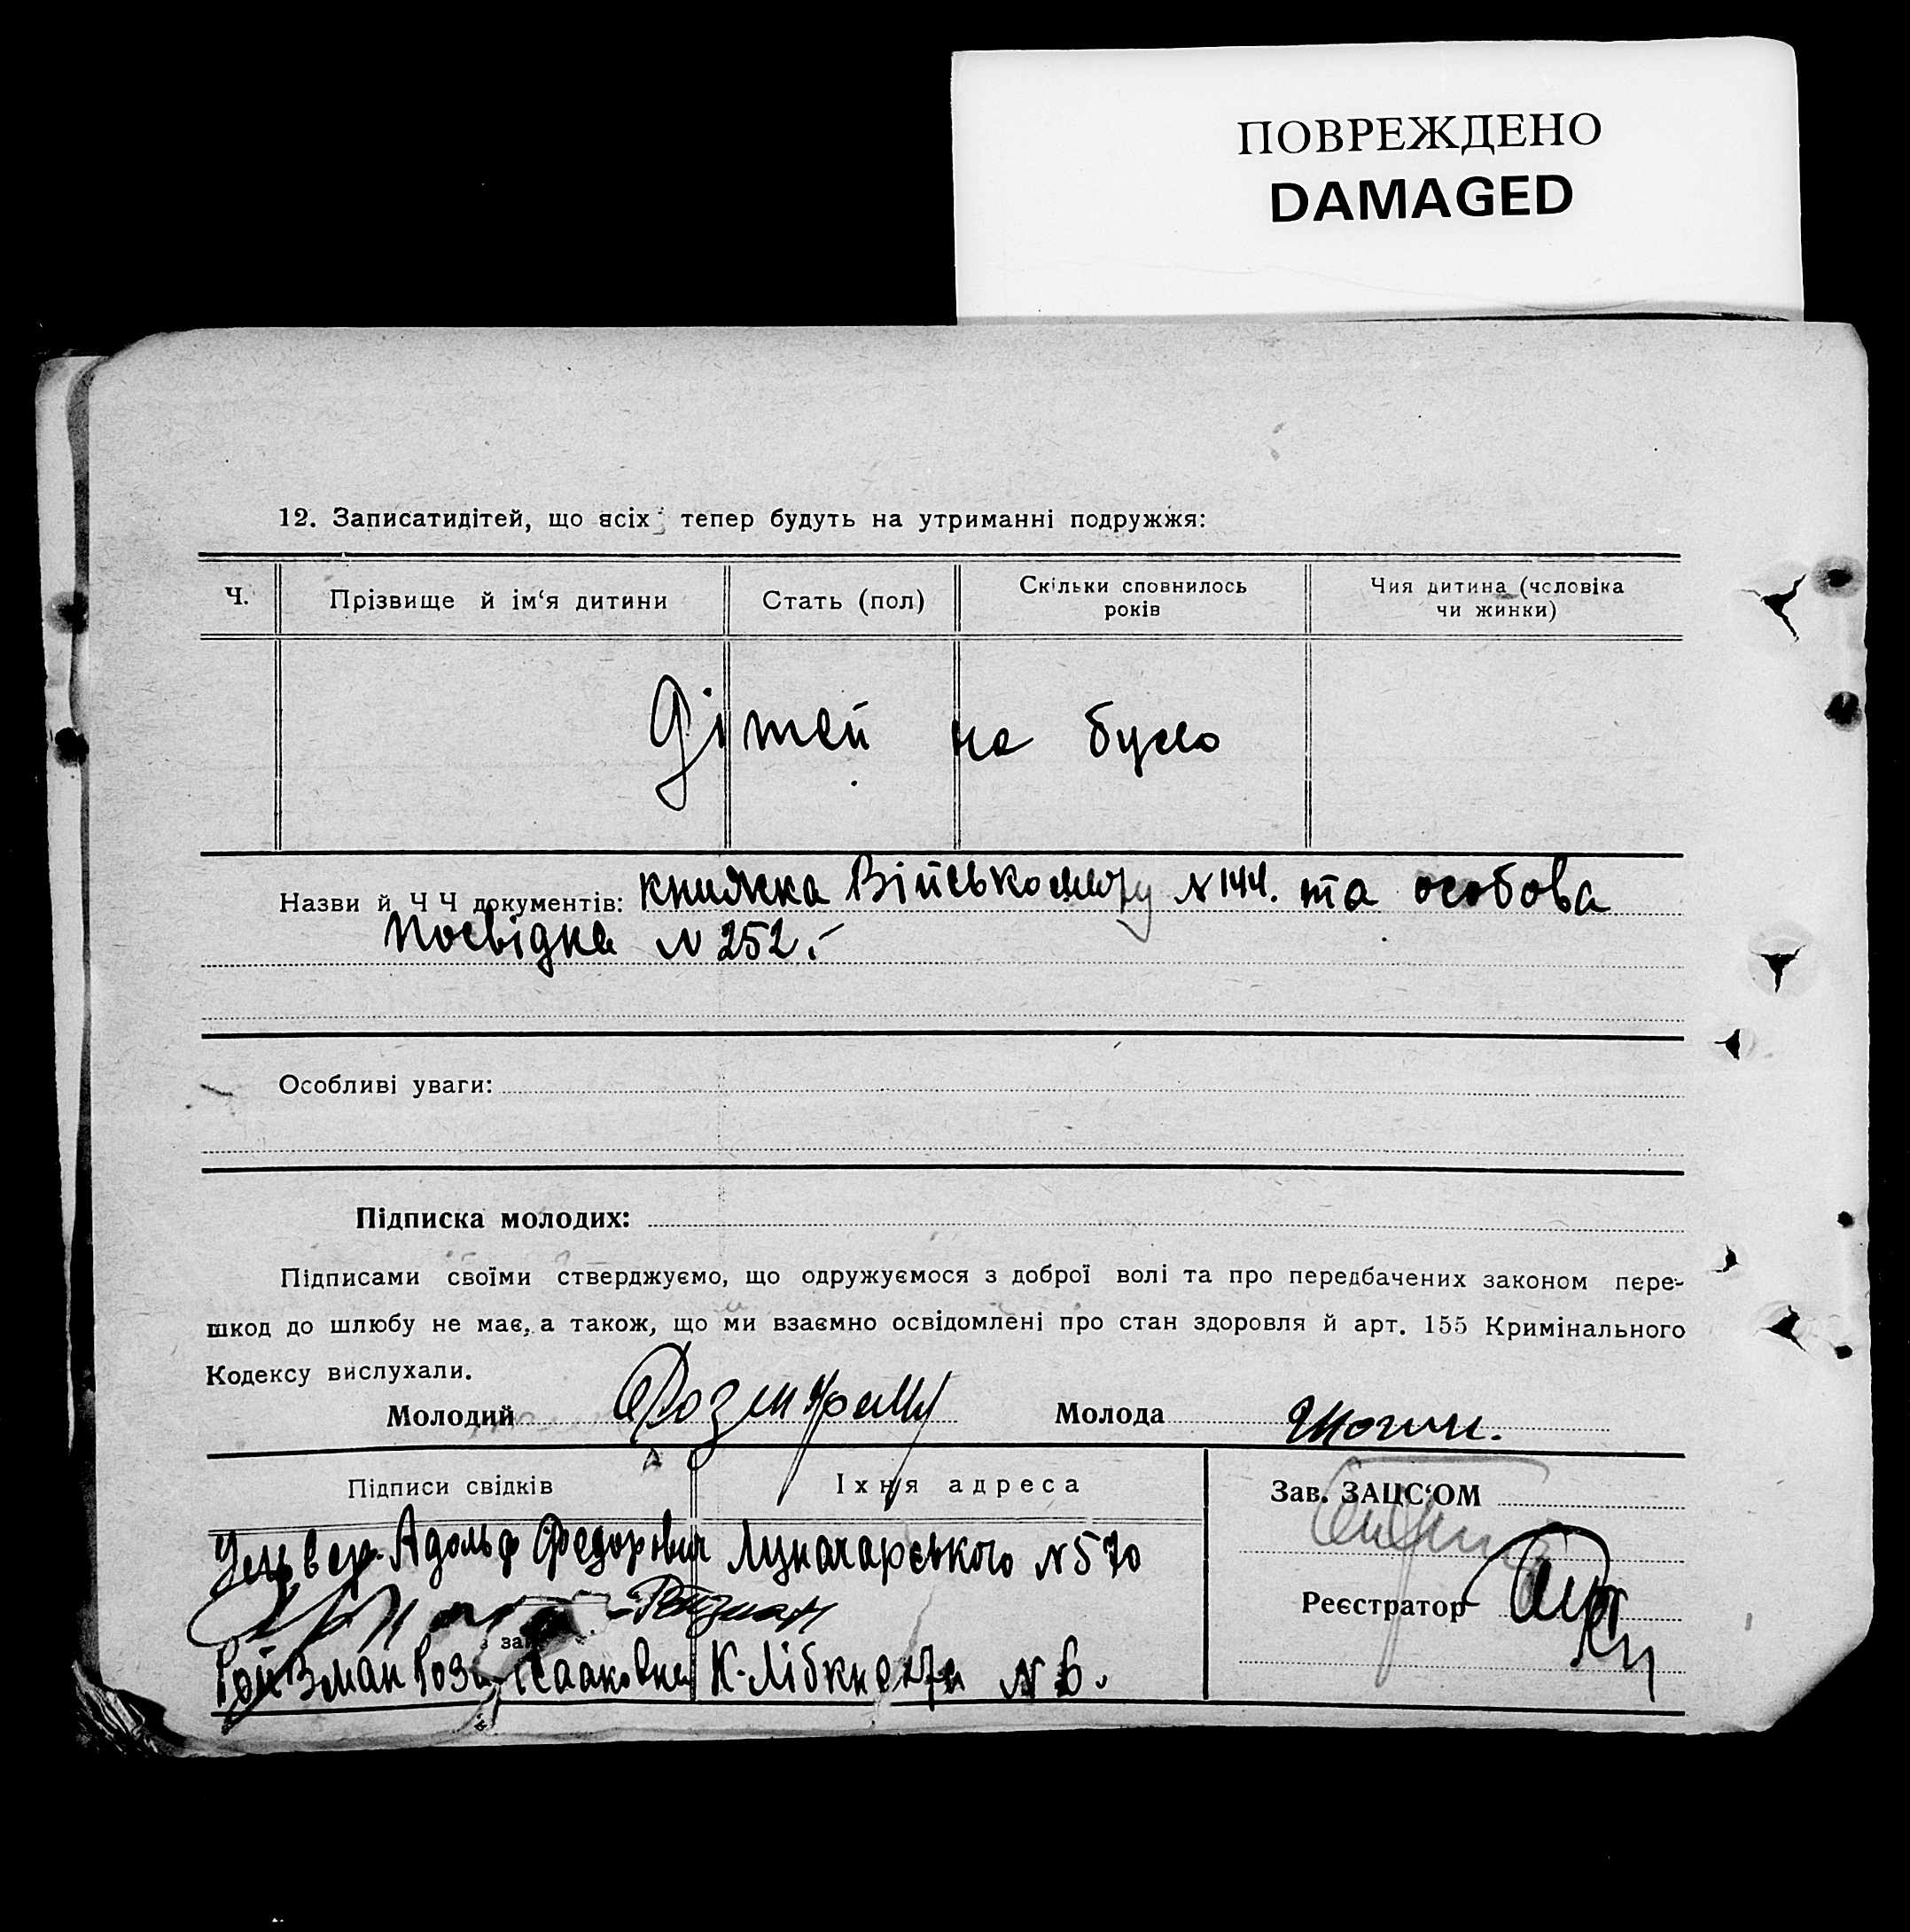 ПОВРЕЖДЕНО
DAMAGED
12. Записатидітей, що всіх тепер будуть на утриманні подружжя:
Ч. Прізвище й ім‘я дитини Стать (пол) Скільки сповнилось років Чия дитина (чсловіка чи жинки)
Дітей не було
Назви й Ч Ч документів: книжка Військо №144. та особова
посвідка №252.-
Особливі уваги:
Підписка молодих:
Підписами своїми стверджуємо, що одружуємося з доброї волі та про передбачених законом пере-
шкод до шлюбу не має, а також, що ми взаємно освідомлені про стан здоровля й арт. 155 Кримінального
Кодексу вислухали.
Молодий Молода
Підписи свідків Їхня адреса Зав. ЗАЦС‘ОМ
Адольф Федорович Луначарського №570
Ройзман
Реєстратор
Ройзман Роза Ісааковна К-Лібкнехта №6.